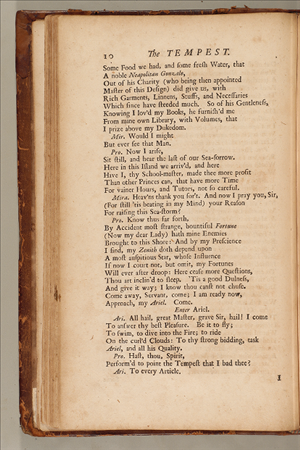 10 The TEMPEST.
Some Food we had, and some fresh Water, that
A noble Neapolitan Gonzalo,
Out of his Charity (who being then appointed
Master of this Design) did give us, with
Rich Garments, Linnens, Stuffs, and Necessaries
Which since have steeded much. So of his Gentleness,
Knowing I lov'd my Books, he furnish'd me
From mine own Library, with Volumes, that
I prize above my Dukedom.
Mir. Would I might
But ever see that Man.
Pro. Now I arise,
Sit still, and hear the last of our Sea-sorrow.
Here in this Island we arriv'd, and here
Have I, thy School-master, made thee more profit
Than other Princes can, that have more Time
For vainer Hours, and Tutors, not so careful.
Mira. Heav'ns thank you for't. And now I pray you, Sir,
(For still 'tis beating in my Mind) your Reason
For raising this Sea-storm?
Pro. Know thus far forth,
By Accident most strange, bountiful Fortune
(Now my dear Lady) hath mine Enemies
Brought to this Shore: And by my Prescience
I find, my Zenith doth depend upon
A most auspitious Star, whose Influence
If now I court not, but omit, my Fortunes
Will ever after droop: Here cease more Questions,
Thou art inclin'd to sleep. 'Tis a good Dulness,
And give it way; I know thou canst not chuse.
Come away, Servant, come; I am ready now,
Approach, my Ariel. Come.
Enter Ariel.
Ari. All hail, great Master, grave Sir, hail! I come
To answer thy best Pleasure. Be it to fly;
To swim, to dive into the Fire; to ride
On the curl'd Clouds: To thy strong bidding, task
Ariel, and all his Quality.
Pro. Hast, thou, Spirit,
Perform'd to point the Tempest that I bad thee?
Ari. To every Article.
I